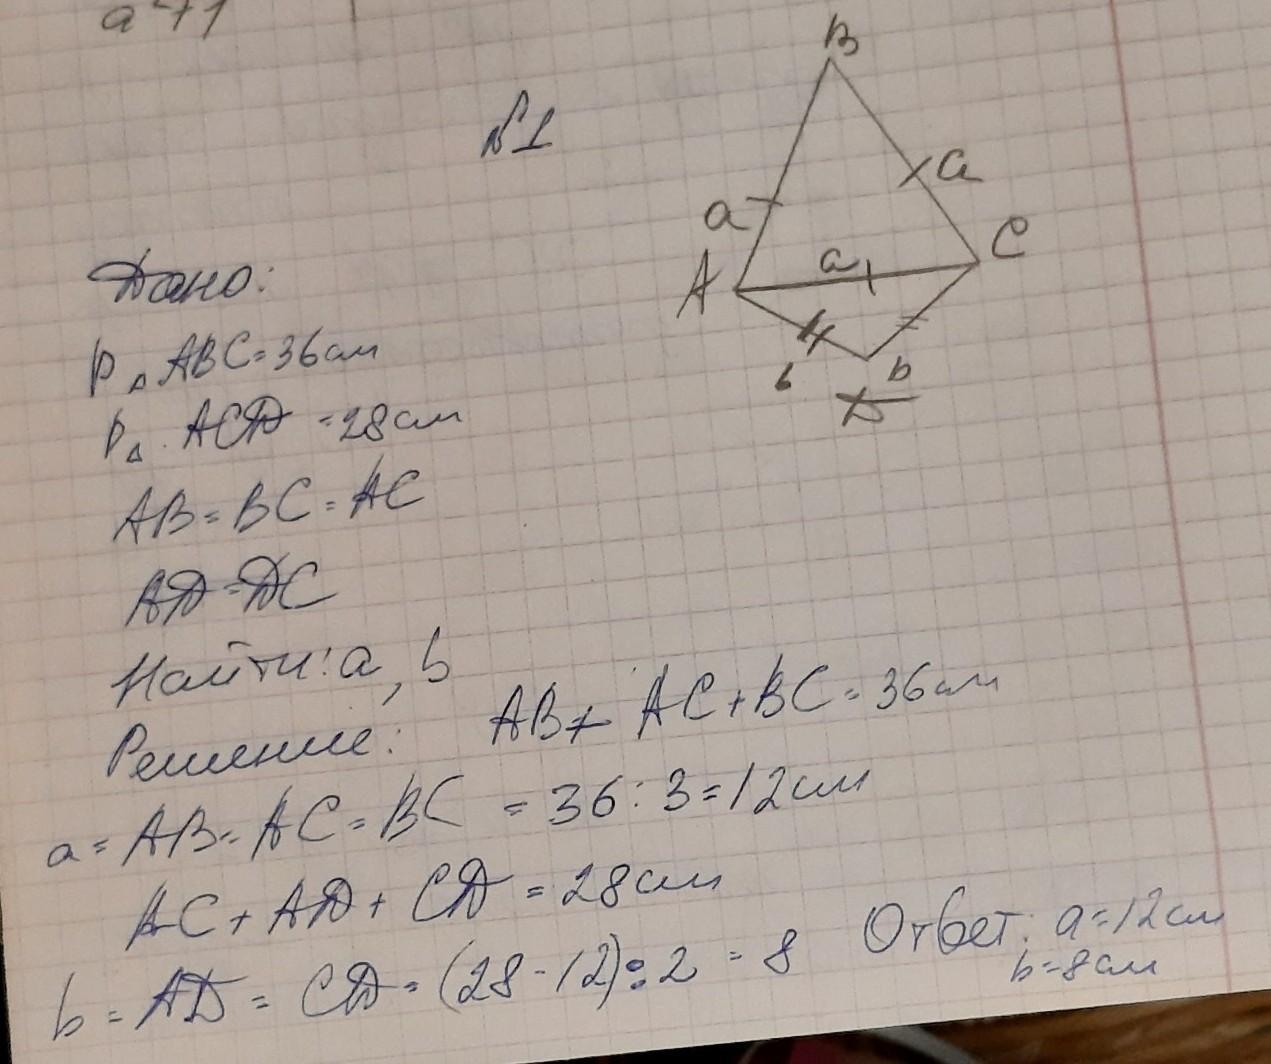 №1
B
a
a
A
a
C
b
b
D
Дано:
P△ABC=36см
P△.ACD=28см
AB=BC=AC
AD=DC
Найти: a, b
Решение: AB+AC+BC=36см
a=AB=AC=BC=36:3=12см
AC+AD+CD=28см
b=AD=CD=(28-12):2=8
Ответ: a=12см
b=8см